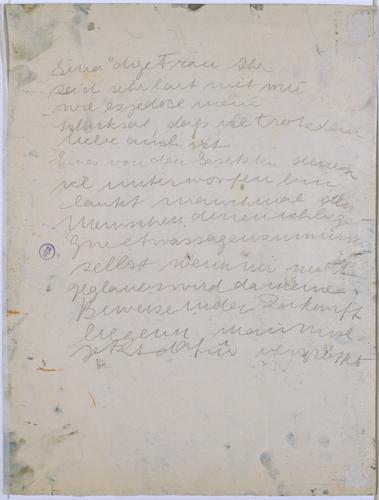 Gnä"dige Frau Ihr
seid sehr hart mit mir
wie es jedoch mein
Schicksal, daß ich trotzdem
liebe auch ist
Eines von den Gesetzen denen
ich unterworfen bin
lautet manchmal den
Menschen denen ich bege-
gne etwas sagen zu müssen
selbst wenn mir nicht
geglaubt wird da meine
Beweise in der Zukunft
liegen man mich
jetzt dafür verspottet